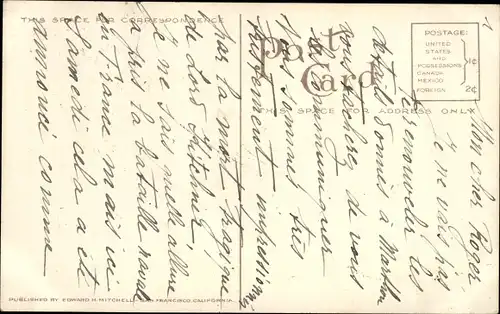 THIS SPACE FOR CORRESPONDENCE
Post
Card
THIS SPACE FOR ADDRESS ONLY
POSTAGE:
UNITED
STATES
AND
POSSESSIONS
CANADA
MEXICO
1¢
FOREIGN 2¢
PUBLISHED BY EDWARD H. MITCHELL, SAN FRANCISCO, CALIFORNIA.
Mon cher Roger
Je ne vais pas
renouveler les
détails donnés à Marthon
vous de vous
les communiquer
Nous sommes très
impressionnés
par la mort tragique
de Lord Kitchener,
Je ne sais quelle allure
a pris la bataille navale
en France mais ici
Samedi cela a été
annoncé comme